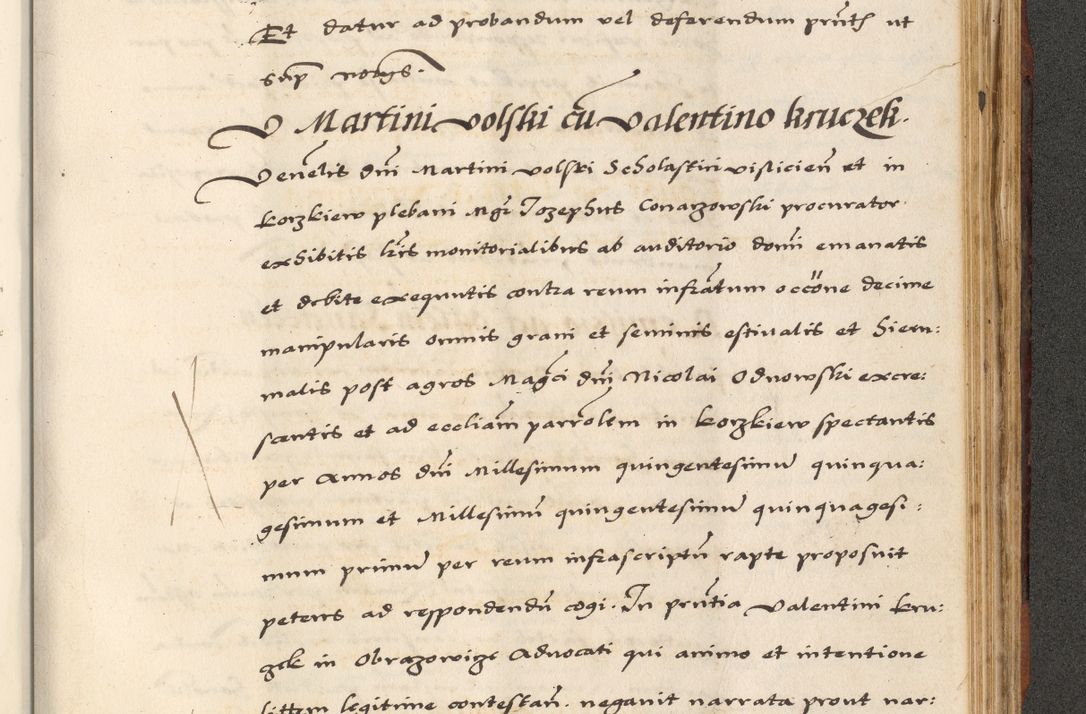 Et datur ad probandum vel deferendum prñth ut
sup̄ nom̄s.
V Martini volski cū valentino kruczek.
Venelis dnī Martini volski Scholastici visliciēn et in
korzkiew plebani Mgr̄ Jozephus Conarzowski procurator
exhibitis lrīs monitorialibus ab auditorio domī emanatis
et debite exequutis contra reum infrātum occōne decime
manipularis omnis grani et seminis estivalis et hiem:
malis post agros Magcī dnī Nicolai Odnowski excre:
scentis et ad eccliām parrōlem in korzkiew spectantis
per Annos dnī Millesimum quingentesimū quinqua:
gesimum et Millesimū quingentesimū quinquagesi:
mum primū per reum infrascriptū rapte proposuit
petens ad respondendū cogi. In prñtia valentini kru:
gek in Obrazowize Advocati qui animo et intentione
littem legitime contestañ. negavit narrata prout nar: